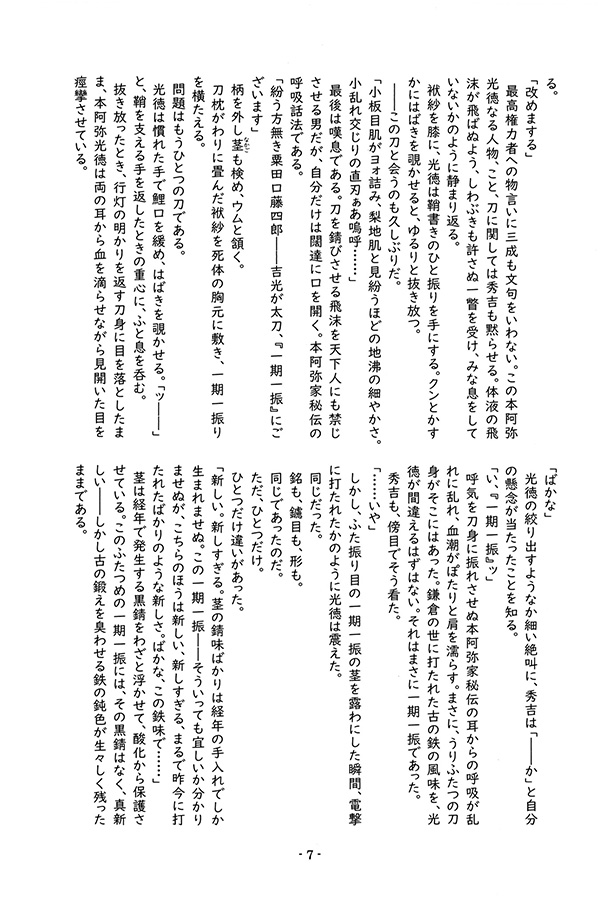 る。
「改めまする」
最高権力者への物言いに三成も文句をいわない。この本阿弥
光徳なる人物、こと、刀に関しては秀吉も黙らせる。体液の飛
沫が飛ばぬよう、しわぶきも許さぬ一瞥を受け、みな息をして
いないかのように静まり返る。
袱紗を膝に、光徳は鞘書きのひと振りを手にする。クンとかす
かにはばきを覗かせると、ゆるりと抜き放つ。
――この刀と会うのも久しぶりだ。
「小板目肌がヨォ詰み、梨地肌と見紛うほどの地沸の細やかさ。
小乱れ交じりの直刃ぁあ嗚呼……」
最後は嘆息である。刀を錆びさせる飛沫を天下人にも禁じ
させる男だが、自分だけは闊達に口を開く。本阿弥家秘伝の
呼吸話法である。
「紛う方無き粟田口藤四郎――吉光が太刀、『一期一振』にご
ざいます」
柄を外し茎も検め、ウムと頷く。
なかご
刀枕がわりに畳んだ袱紗を死体の胸元に敷き、一期一振り
を横たえる。
問題はもうひとつの刀である。
光徳は慣れた手で鯉口を緩め、はばきを覗かせる。「ッ――」
と、鞘を支える手を返したときの重心に、ふと息を呑む。
抜き放ったとき、行灯の明かりを返す刀身に目を落としたま
ま、本阿弥光徳は両の耳から血を滴らせながら見開いた目を
痙攣させている。
「ばかな」
光徳の絞り出すようなか細い絶叫に、秀吉は「――か」と自分
の懸念が当たったことを知る。
「い、『一期一振』ッ」
呼気を刀身に振れさせぬ本阿弥家秘伝の耳からの呼吸が乱
れに乱れ、血潮がぽたりと肩を濡らす。まさに、うりふたつの刀
身がそこにはあった。鎌倉の世に打たれた古の鉄の風味を、光
徳が間違えるはずはない。それはまさに一期一振であった。
秀吉も、傍目でそう看た。
「……いや」
しかし、ふた振り目の一期一振の茎を露わにした瞬間、電撃
に打たれたかのように光徳は震えた。
同じだった。
銘も、鑢目も、形も。
同じであったのだ。
ただ、ひとつだけ。
ひとつだけ違いがあった。
「新しい。新しすぎる。茎の錆味ばかりは経年の手入れでしか
生まれませぬ。この一期一振――そういっても宜しいか分かり
ませぬが、こちらのほうは新しい、新しすぎる、まるで昨今に打
たれたばかりのような新しさ。ばかな、この鉄味で……」
茎は経年で発生する黒錆をわざと浮かせて、酸化から保護さ
せている。このふたつめの一期一振には、その黒錆はなく、真新
しい――しかし古の鍛えを臭わせる鉄の鈍色が生々しく残った
ままである。
- 7 -